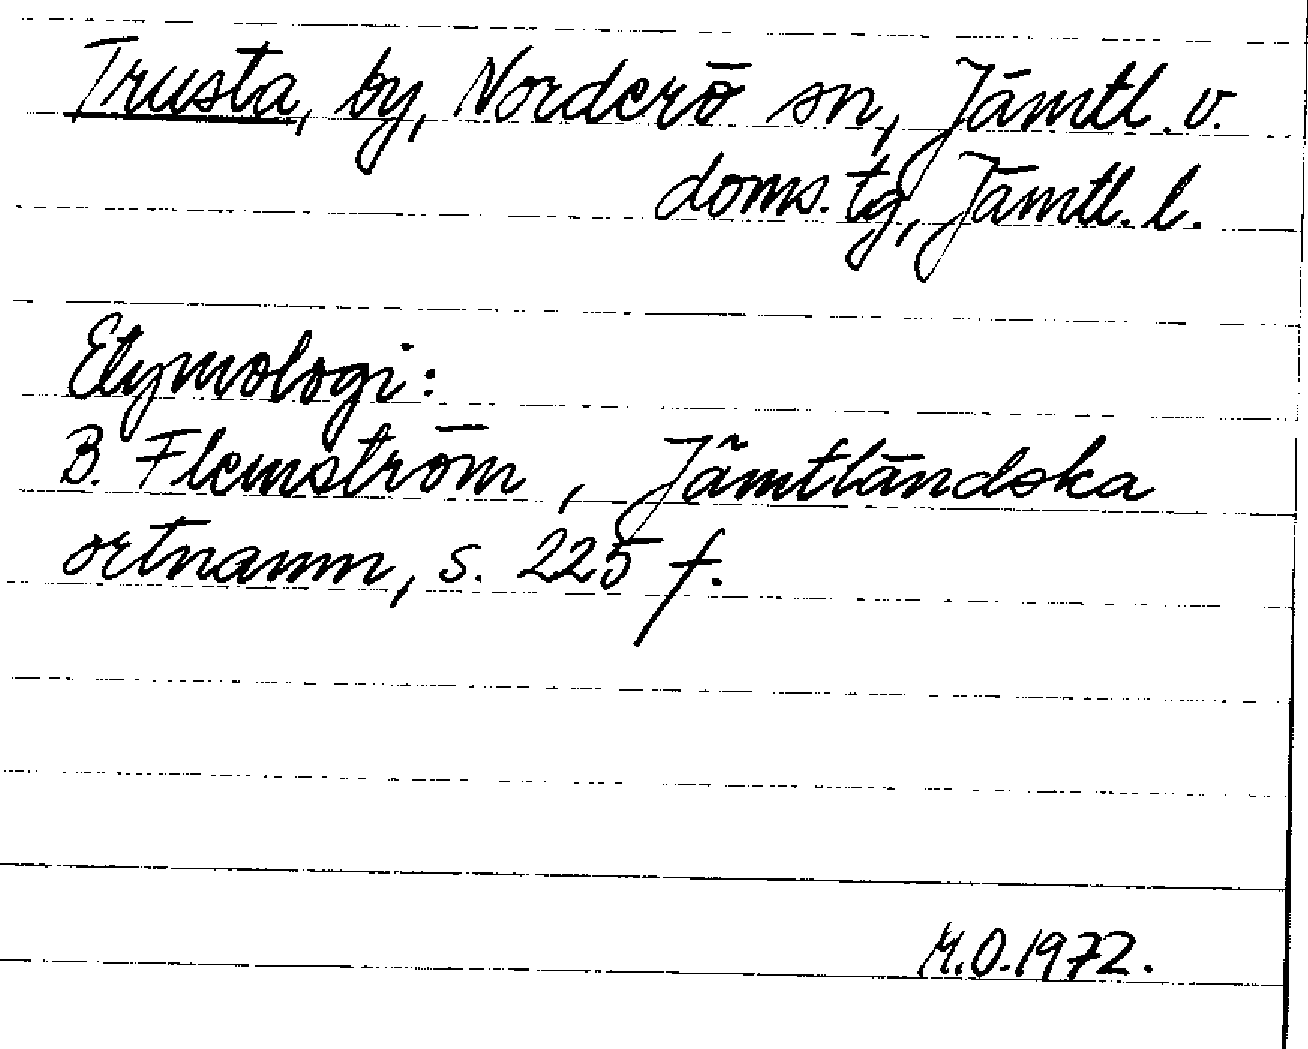 Trusta, by, Norderö sn, Jämtl. v.
doms. tg, Jämtl. l.
Etymologi:
B. Flemström, Jämtländska
ortnamn, s. 225 f.
M.O. 1972.